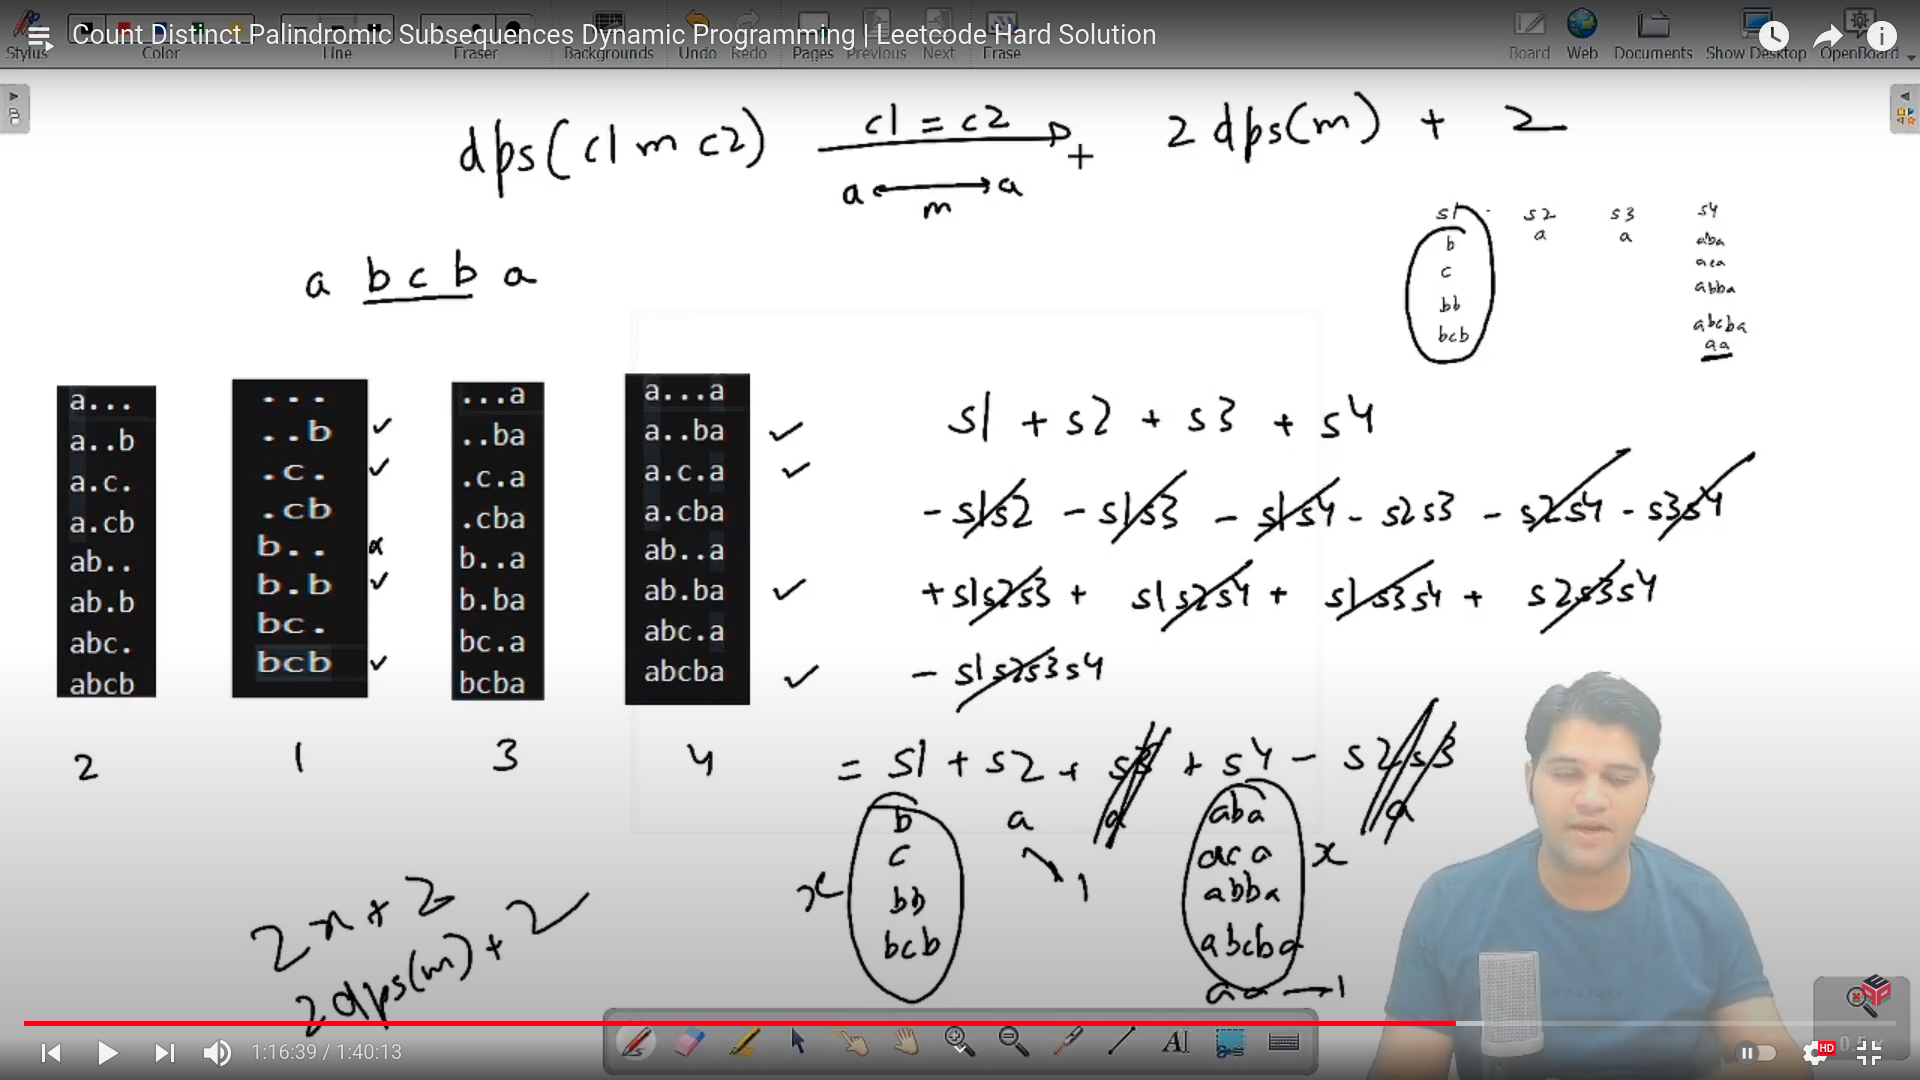 Count Distinct Palindromic Subsequences Dynamic Programming | Leetcode Hard Solution
Stylus Color Line Eraser Backgrounds Undo Redo Pages Previous Next Erase Board Web Documents Show Desktop OpenBoard
dps(c1 m c2) c1 = c2 + 2 dps(m) + 2
a m a
a b c b a
s1 s2 s3 s4
b a a aba
c aca
bb abba
bcb abcba
aa
a...
a..b
a.c.
a.cb
ab..
ab.b
abc.
abcb
2
...
..b
.c.
.cb
b..
b.b
bc.
bcb
1
...a
..ba
.c.a
.cba
b..a
b.ba
bc.a
bcba
3
a...a
a..ba
a.c.a
a.cba
ab..a
ab.ba
abc.a
abcba
4
s1 + s2 + s3 + s4
- s1s2 - s1s3 - s1s4 - s2s3 - s2s4 - s3s4
+ s1s2s3 + s1s2s4 + s1s3s4 + s2s3s4
- s1s2s3s4
= s1 + s2 + s3 + s4 - s2s3
b a a aba a
c aca
bb abba
bcb abcba
x 1 x
aa 1
2x + 2
2dps(m) + 2
1:16:39 / 1:40:13
HD